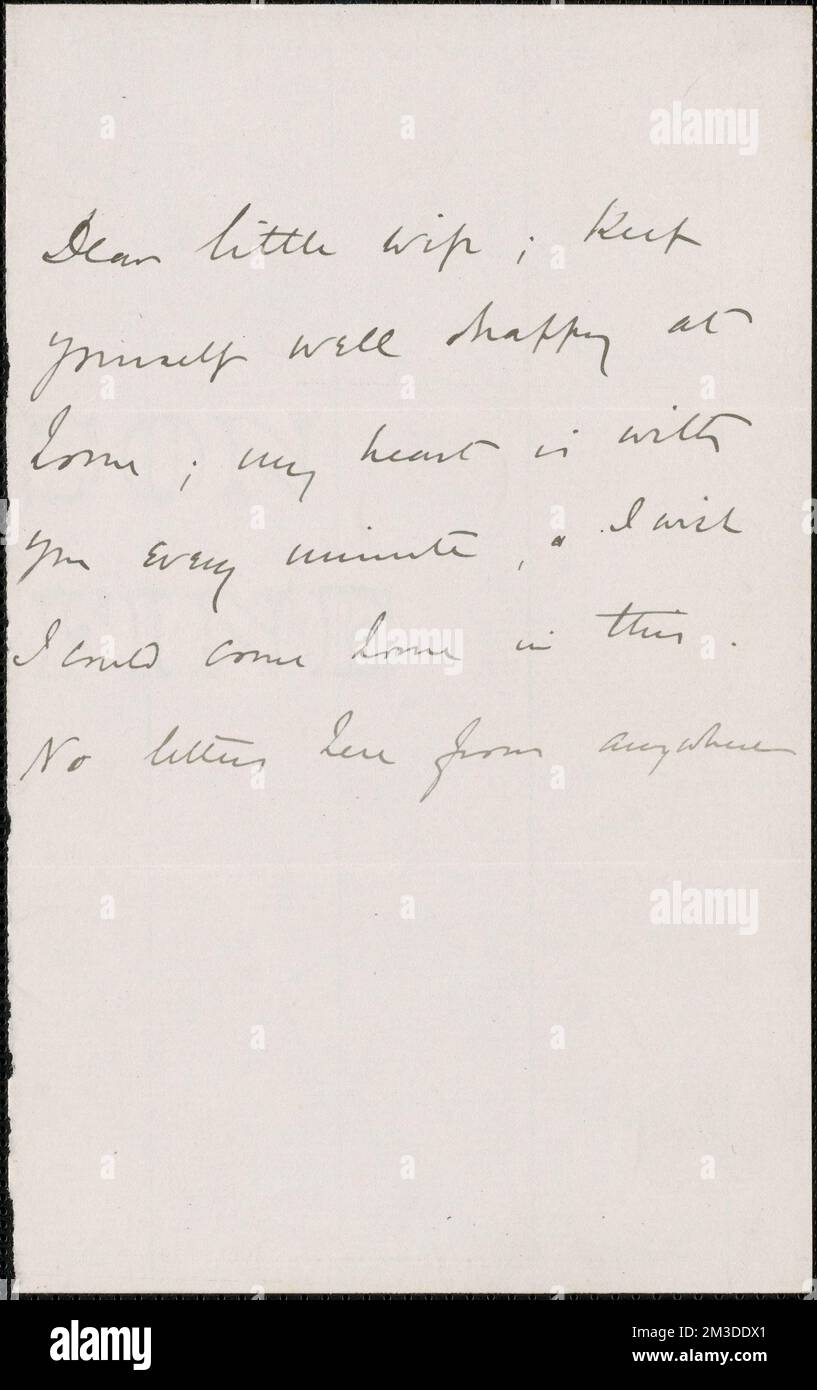 Dear little wife; Keep
yourself well & happy at
home; my heart is with
you every minute, & I wish
I could come home in this.
No letters here from anywhere
alamy
alamy
alamy
a
alamy
Image ID: 2M3DDX1
www.alamy.com